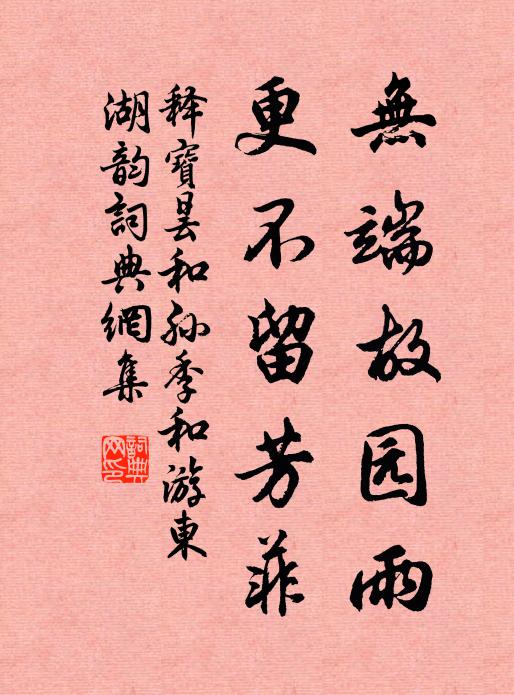 無端故园雨
更不留芳菲
释寶昙和孙季和游東
湖韵詞典網集
詞典网印